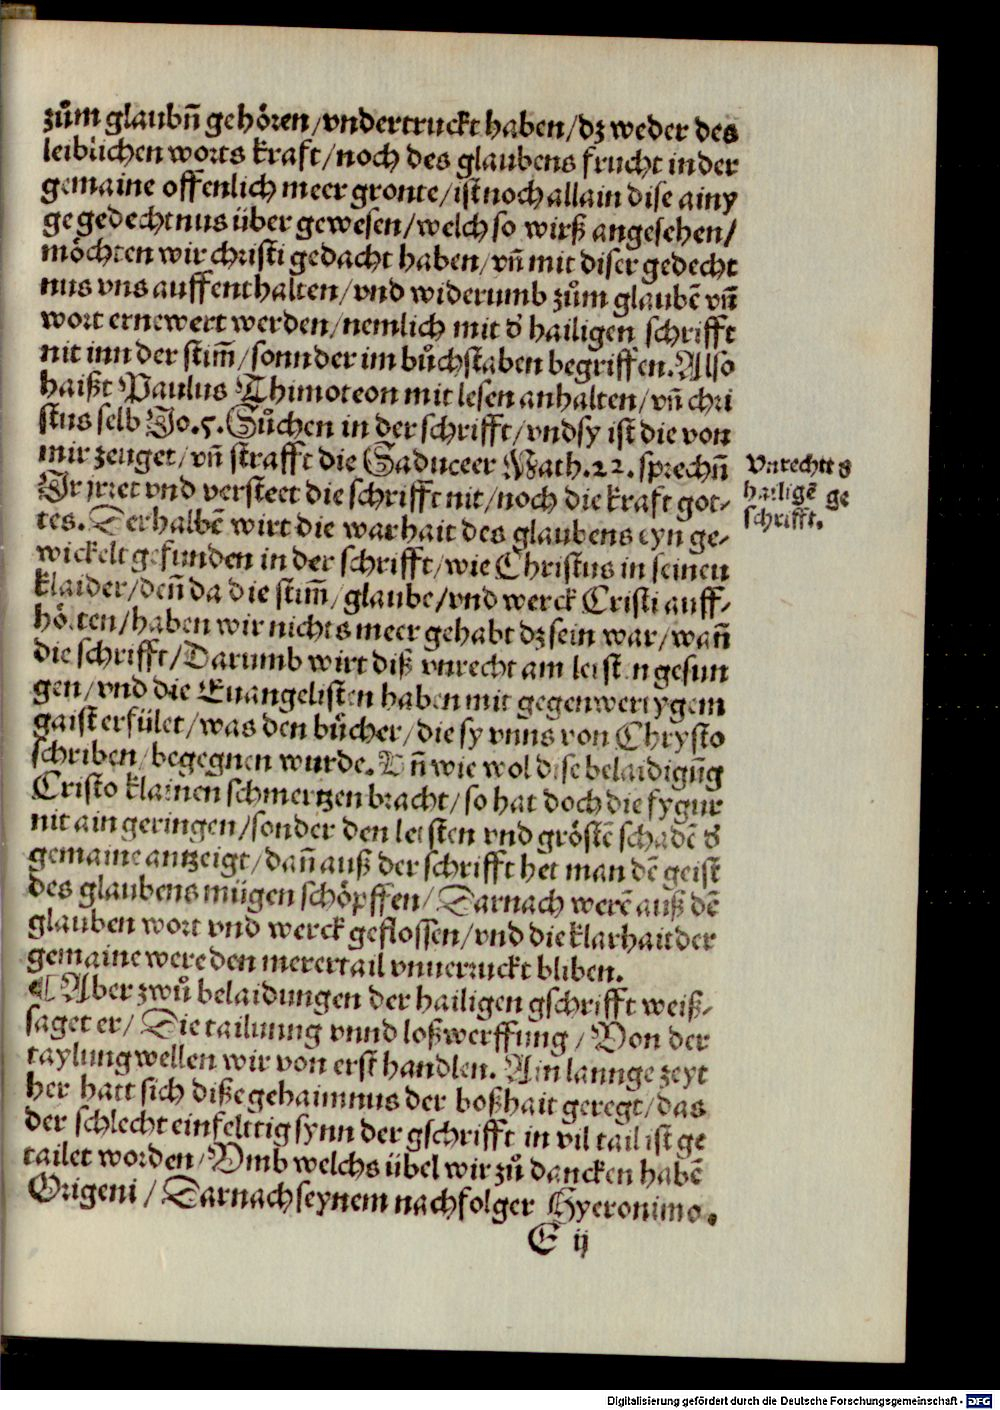 zům glaubñ gehören/vndertruckt haben/dz weder des
leiblichen worts kraft/noch des glaubens frucht in der
gemaine offenlich meer gronte/ist noch allain dise ainy
ge gedechtnus über gewesen/welch so wirß angesehen/
möchten wir christi gedacht haben/vñ mit diser gedecht
nus vns auffenthalten/vnd widerumb zům glaubẽ vñ
wort ernewert werden/nemlich mit d' hailigen schrifft
nit inn der stim̃/sonnder im bůchstaben begriffen. Also
haißt Paulus Thimoteon mit lesen anhalten/vñ chri
stus selb Jo.5. Sůchen in der schrifft/vnd sy ist die von
mir zeuget/vñ strafft die Saduceer Math.22. sprechñ
Ir jrret vnd versteet die schrifft nit/noch die kraft got-
tes. Derhalbẽ wirt die warhait des glaubens eyn ge-
wickelt gefunden in der schrifft/wie Christus in seinen
klaider/deñ da die stim̃/glaube/vnd werck Cristi auff-
hörten/haben wir nichts meer gehabt dz sein war/wañ
die schrifft/Darumb wirt diß vnrecht am leisten gesun
gen/vnd die Euangelisten haben mit gegenwertygem
gaist erfület/was den bücher/die sy vnns von Chrysto
schriben/begegnen wurde. Vñ wie wol dise belaidigũg
Cristo klainen schmertzen bracht/so hat doch die fygur
nit ain geringen/sonder den leisten vnd gröstẽ schadẽ d'
gemaine antzeigt/dañ auß der schrifft het man dẽ geist
des glaubens mügen schöpffen/Darnach werẽ auß dẽ
glauben wort vnd werck geflossen/vnd die klarhait der
gemaine were den merertail vnuerruckt bliben.
¶ Aber zwů belaidungen der hailigen gschrifft weiß-
saget er/Die tailunng vnnd loßwerffung/Von der
taylung wellen wir von erst handlen. Ain lannge zeyt
her hatt sich diße gehaimnus der boßhait geregt/das
der schlecht einfelttig synn der gschrifft in vil tail ist ge
tailet worden/Vmb welchs übel wir zů dancken habẽ
Origeni/Darnach seynem nachfolger Hyeronimo.
E ij
Vnrecht d'
hailigẽ ge
schrifft.
Digitalisierung gefördert durch die Deutsche Forschungsgemeinschaft - DFG